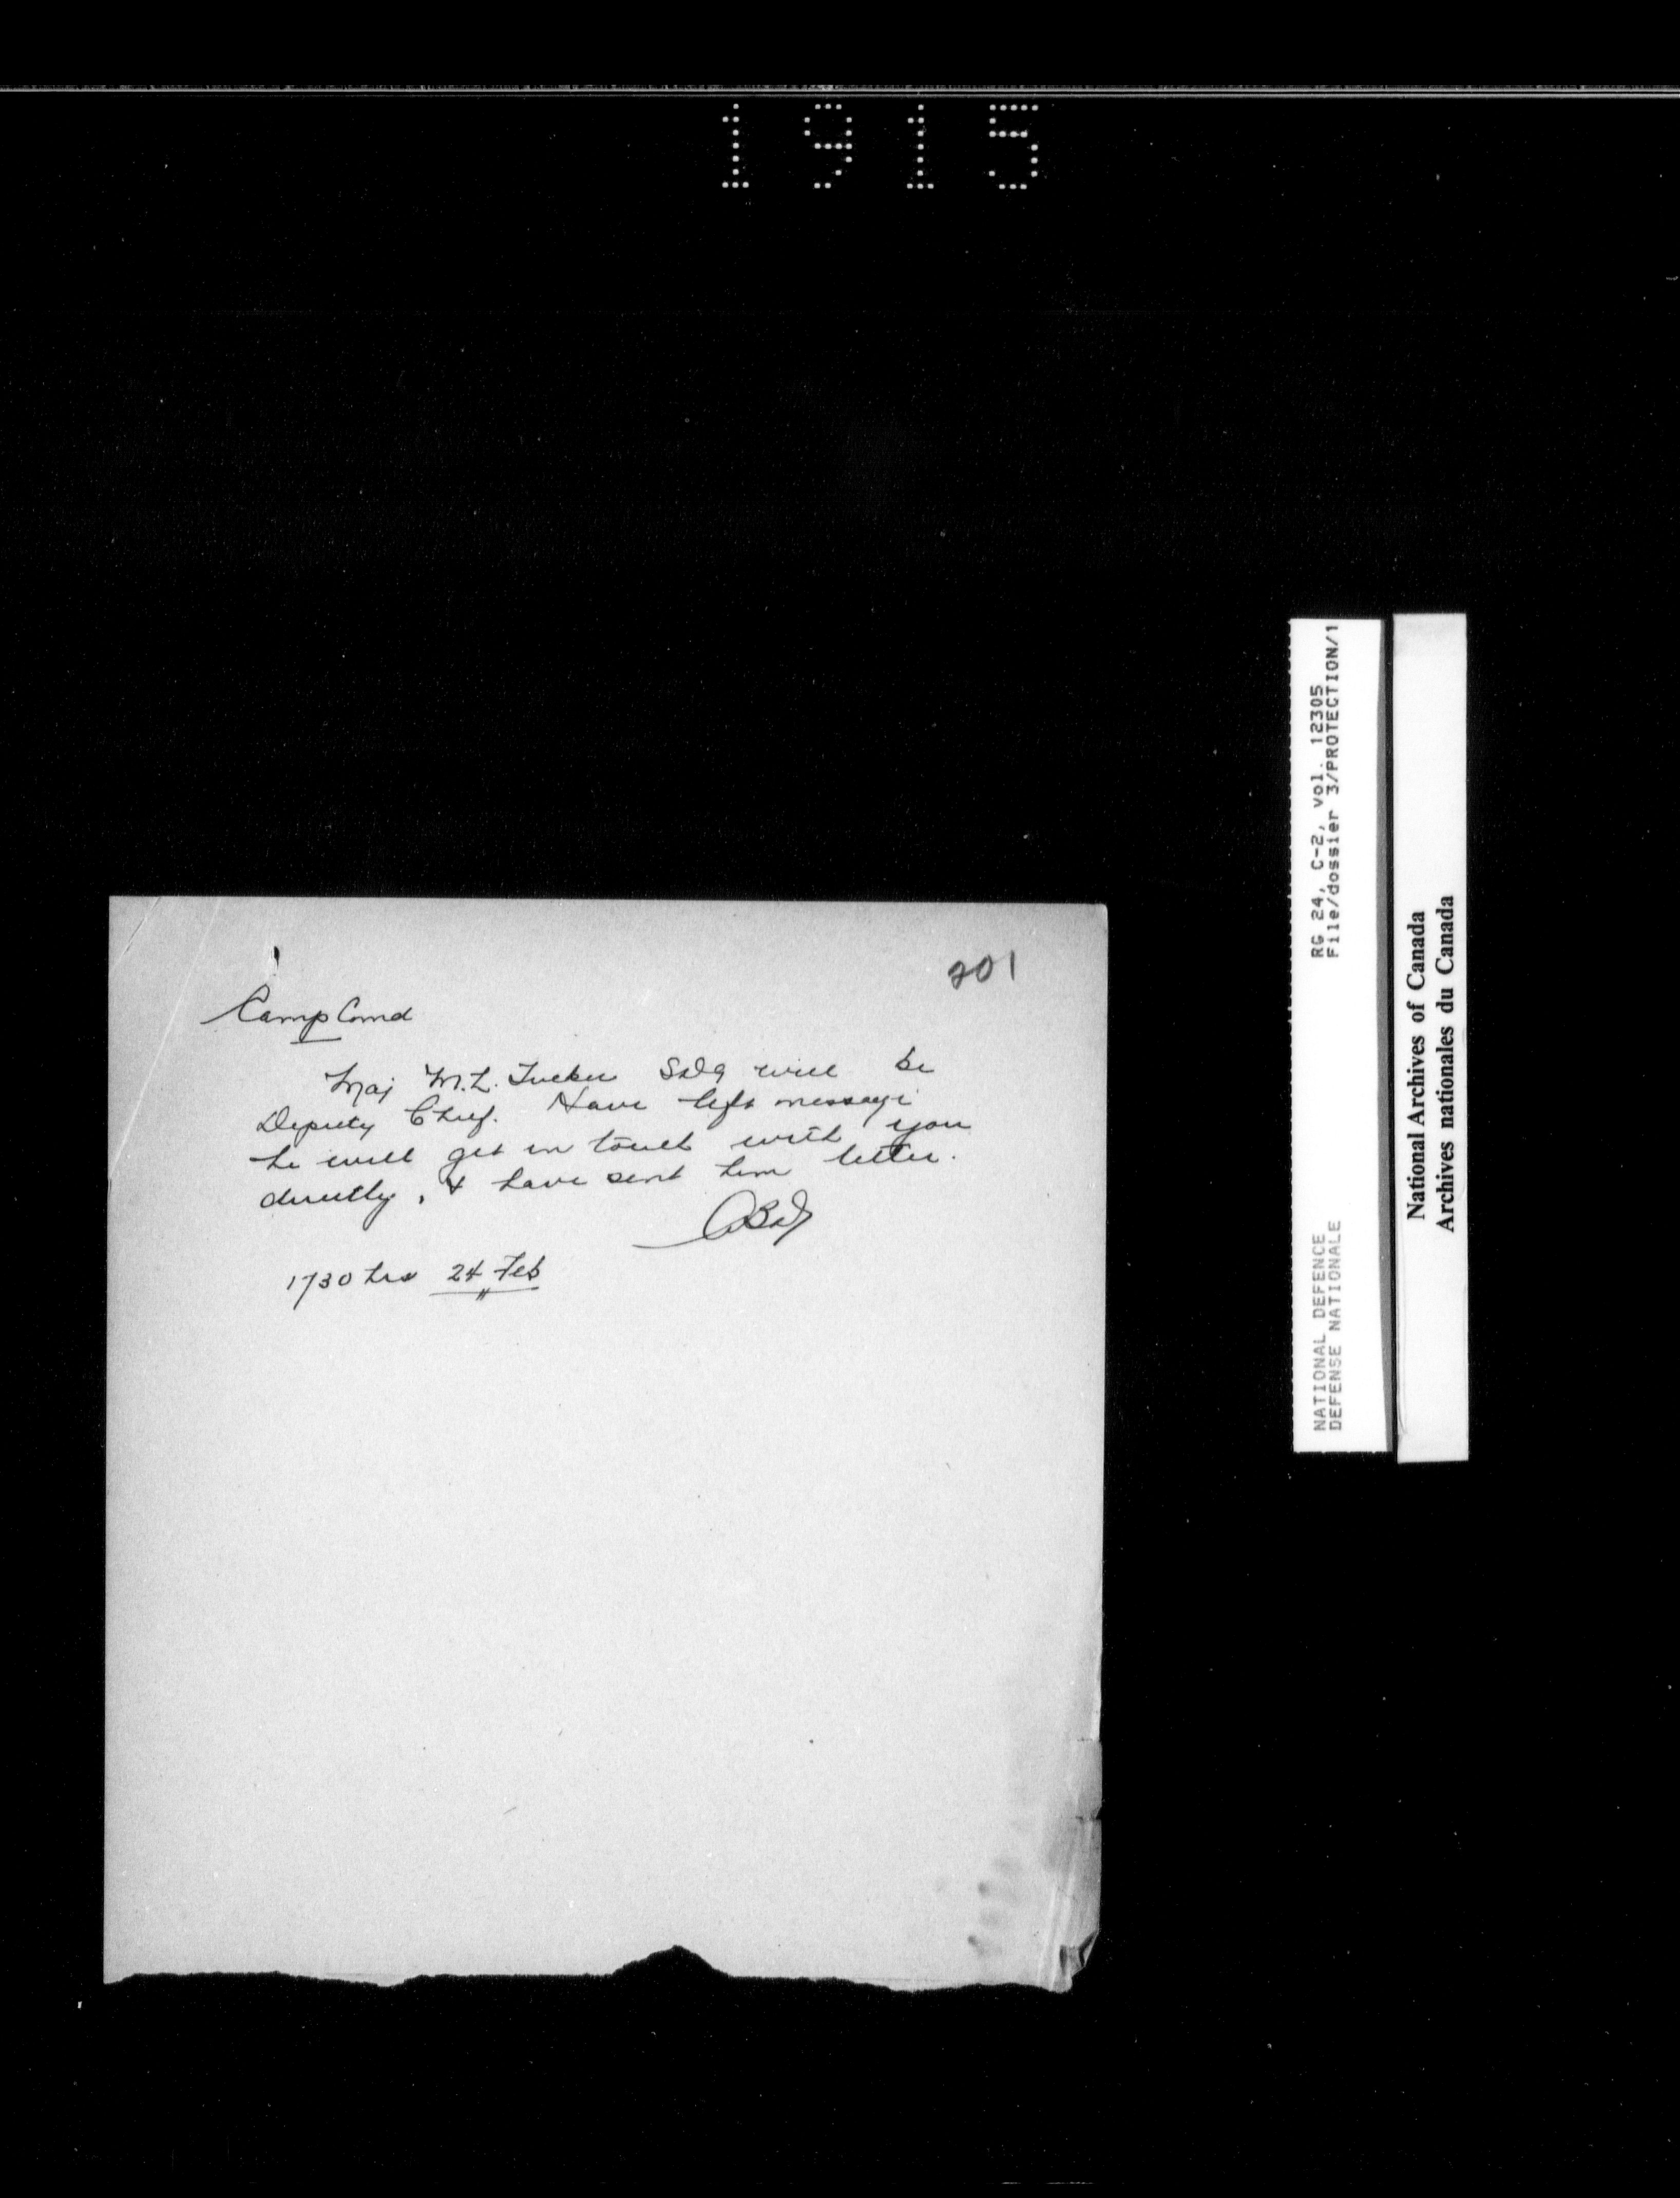 1915
201
Camp Comd
Maj M.L. Tucker SD&G will be
Deputy Chief. Have left message
he will get in touch with you
directly, & have sent him letter.
1730 hrs 24 Feb
RG 24, C-2, vol. 12305
File/dossier 3/PROTECTION/1
NATIONAL DEFENCE
DEFENSE NATIONALE
National Archives of Canada
Archives nationales du Canada